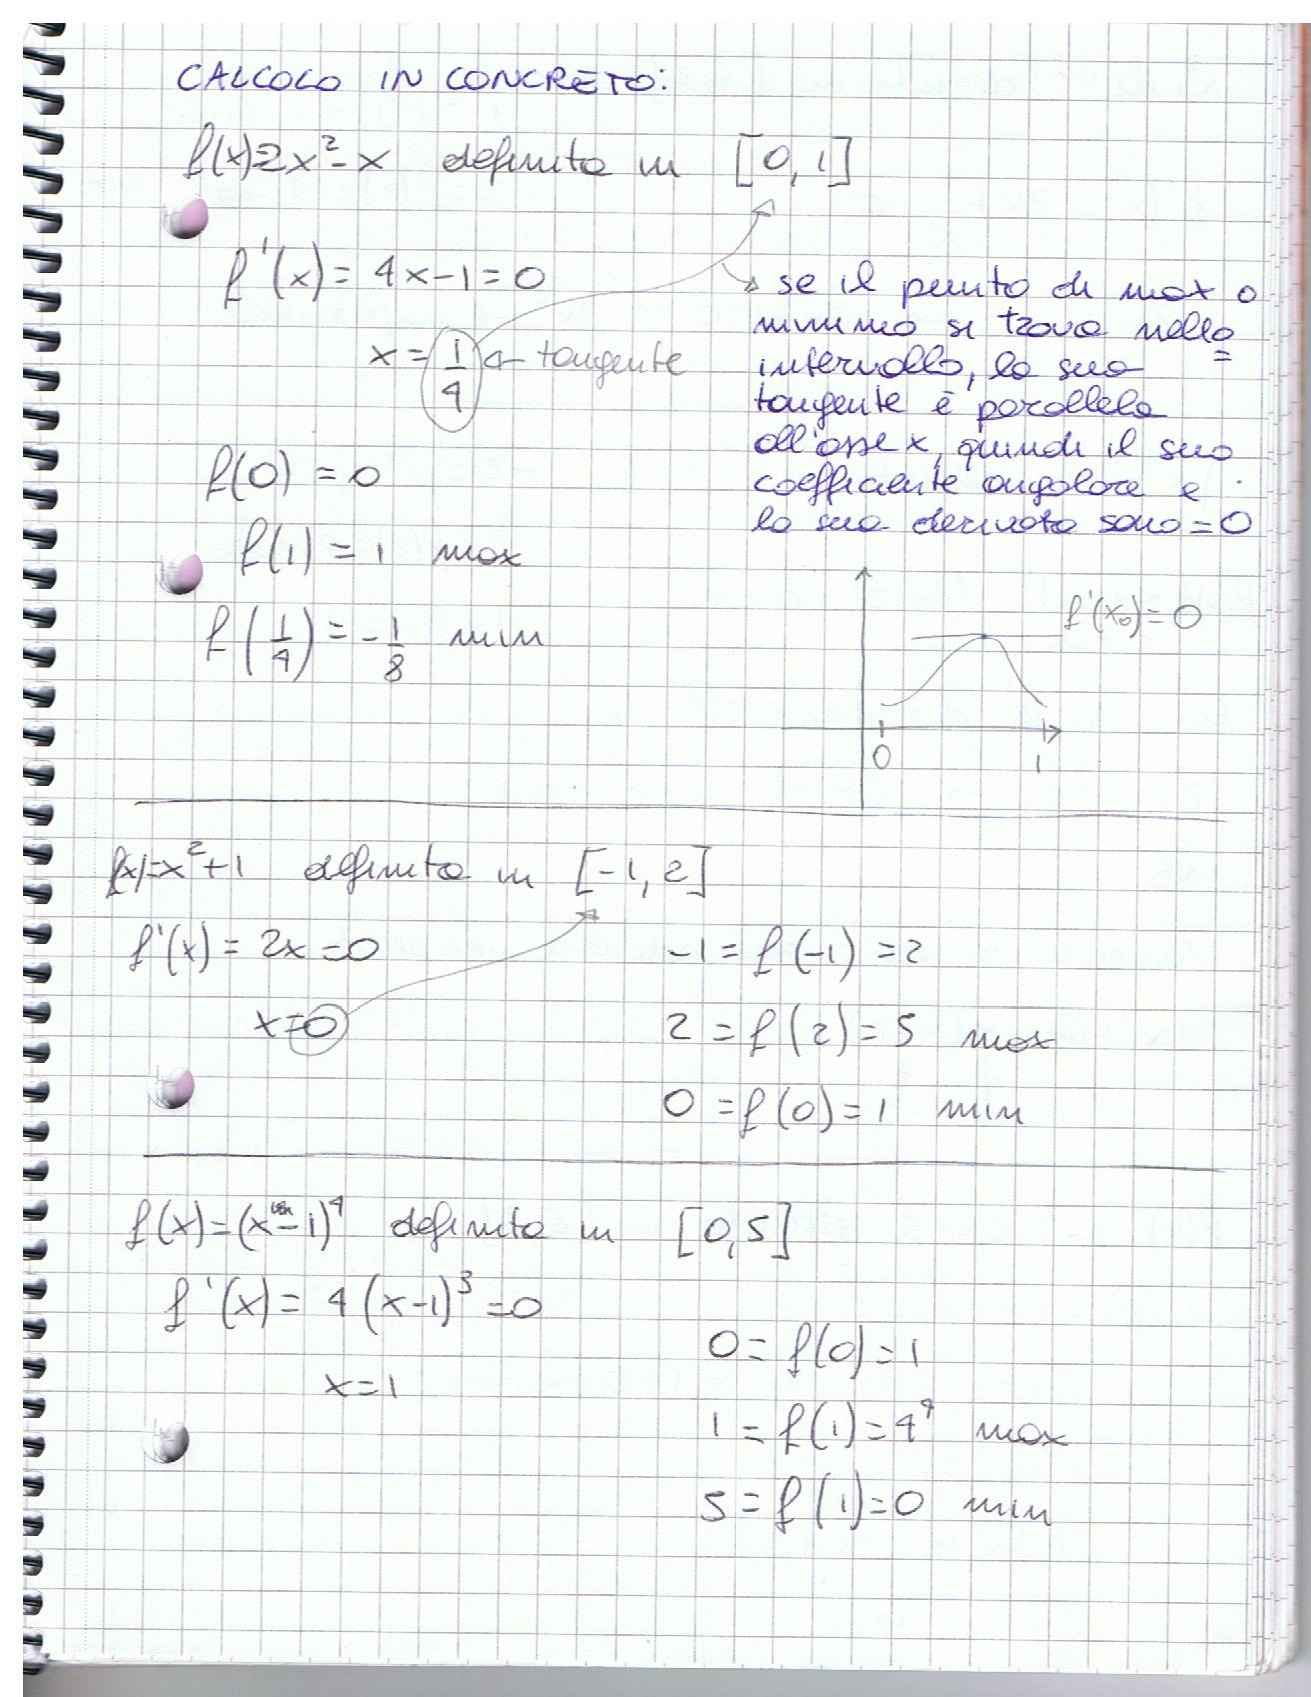 CALCOLO IN CONCRETO:
f(x)=2x²-x definita in [0,1]
f'(x)= 4x-1=0
x= 1/4 ← tangente
→ se il punto di max o
minimo si trova nello
intervallo, la sua
tangente è parallela
all'asse x, quindi il suo
coefficiente angolare e
la sua derivata sono=0
f(0)=0
f(1)=1 max
f(1/4)=-1/8 min
f'(x₀)=0
0 1
f(x)=x²+1 definita in [-1,2]
f'(x)= 2x=0
x=0
-1=f(-1)=2
2=f(2)=5 max
0=f(0)=1 min
f(x)=(x-1)⁴ definita in [0,5]
f'(x)= 4(x-1)³=0
x=1
0=f(0)=1
1=f(1)=4⁴ max
5=f(1)=0 min